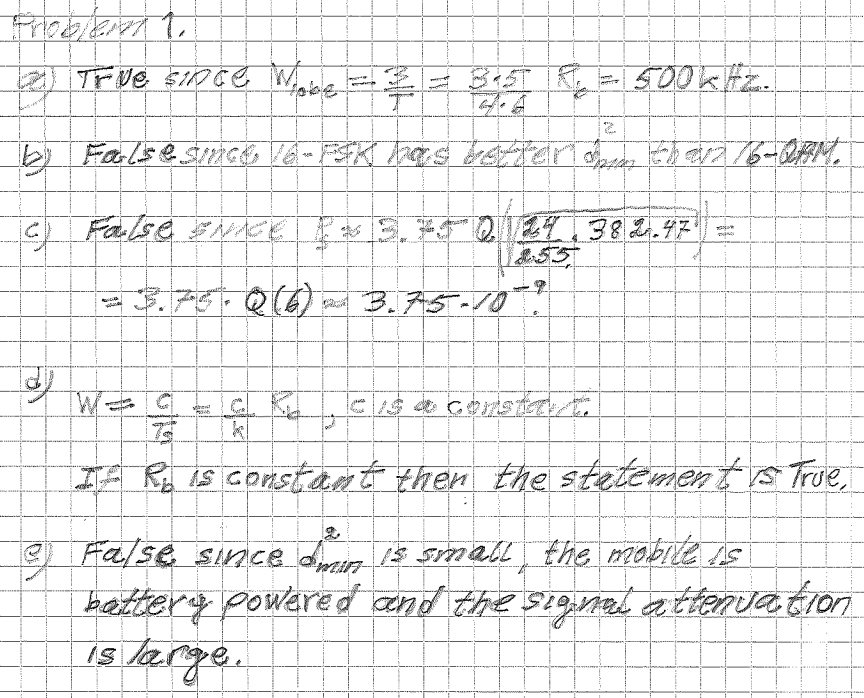 Problem 1.
a) True since W_lobe = 3/T = (3·5)/(4·6) R_b = 500 kHz.
b) False since 16-FSK has better d²_min than 16-QAM.
c) False since P_s ≈ 3.75 Q(√(24/255 · 382.47)) =
= 3.75 · Q(6) ≈ 3.75 · 10⁻⁹.
d)
W = c/T_s = c/k R_b, c is a constant.
If R_b is constant then the statement is True.
e) False since d²_min is small, the mobile is
battery powered and the signal attenuation
is large.